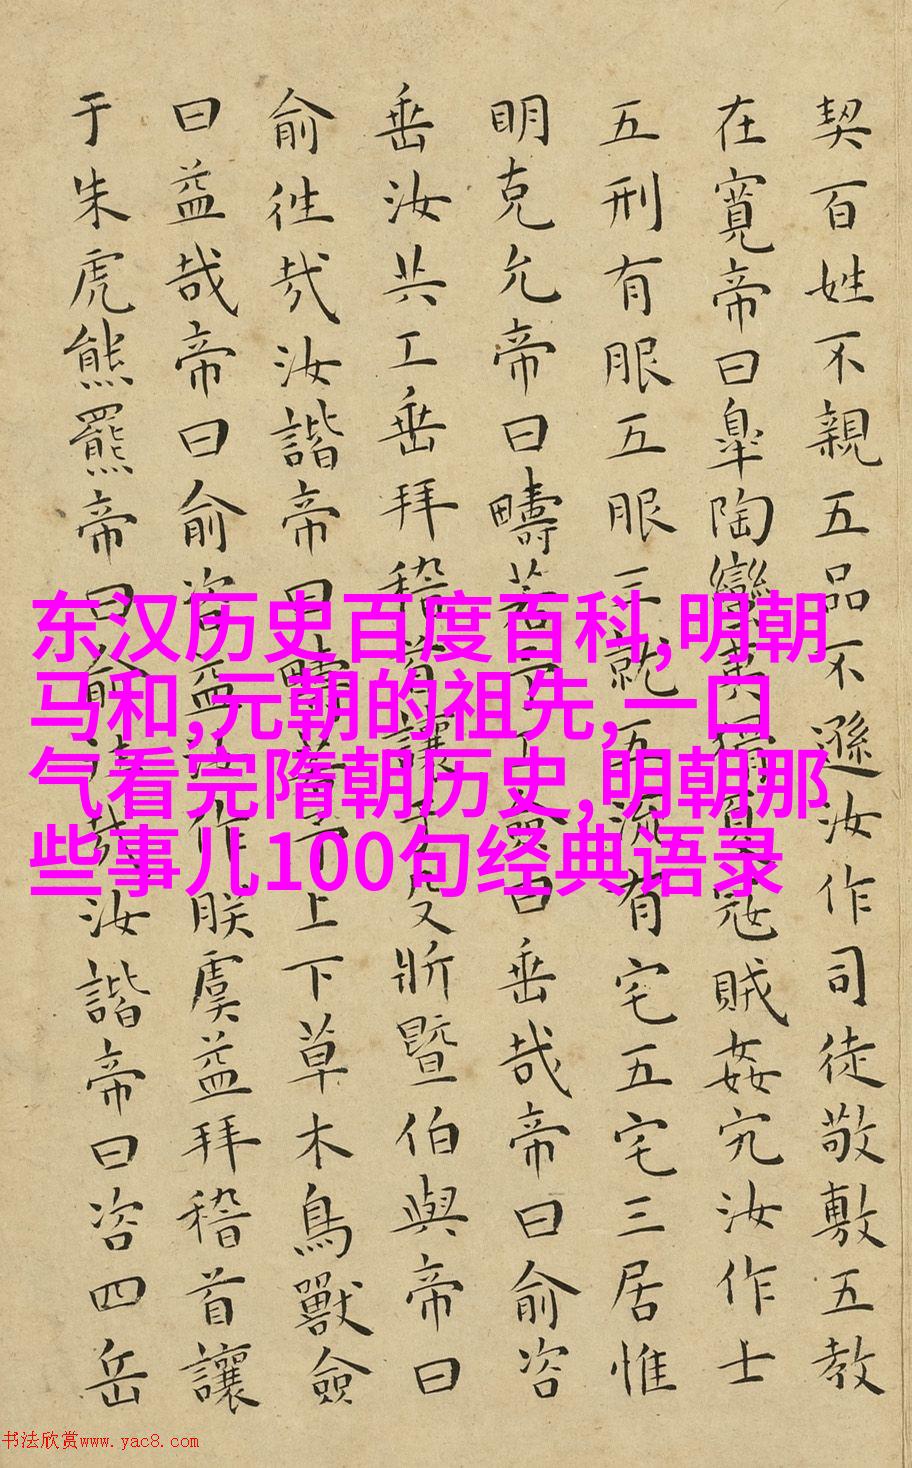 契百姓不親五品不遜汝作司徒敬敷五教
在寬帝曰皐陶蠻夷猾夏寇賊姦宄汝作士
五刑有服五服三就五流有宅五宅三居惟
明克允帝曰疇若予工僉曰垂哉帝曰俞咨
垂汝共工垂拜稽首讓于殳斨暨伯與帝曰
俞徃哉汝諧帝曰疇若予上下草木鳥獸僉
曰益哉帝曰俞咨益汝作朕虞益拜稽首讓
于朱虎熊羆帝曰俞徃哉汝諧帝曰咨四岳
东汉历史百度百科,明朝
马和,元朝的祖先,一口
气看完隋朝历史,明朝那
些事儿100句经典语录
书法欣赏www.yac8.com